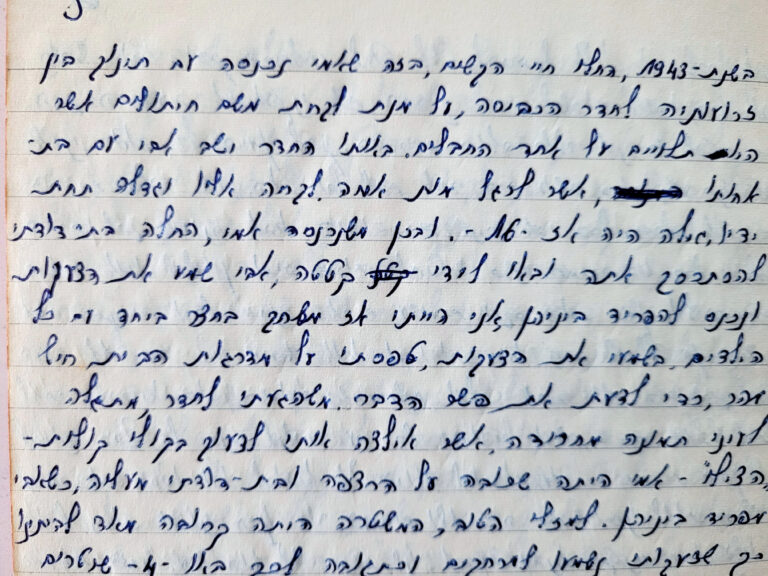 בשנת-1943, החלו חיי הקשים, בזה שאמי נכנסה עם תינוק בין
זרועותיה לחדר הכביסה, על מנת לקחת משם חיתולים אשר
היו תלויים על אחד החבלים. באותו החדר ישב אבי עם בת-
אחותו, אשר לרגל מות אמה לקחה אליו וגדלה תחת
ידיו, גילה היה אז -16-. ובכן משנכנסה אמי, החלה בת-דודתי
להסתכסך אתה ובאו לידי קטטה, אבי שמע את הצעקות
ונכנס להפריד ביניהן. אני הייתי אז משחק בחצר ביחד עם כל
הילדים, בשמעי את הצעקות, טפסתי על מדרגות הבית חיש
מהר, כדי לדעת את פשר הדבר. משהגעתי לחדר, מתגלה
לעיני תמונה מחרידה, אשר אילצה אותי לצעוק בקולי קולות-
"הצילו" - אמי היתה שכובה על הרצפה ובת-דודתי מעליה, כשאבי
מפריד ביניהן. למזלי הטוב, המשטרה היתה קרובה מאוד לביתנו
כך שצעקותי נשמעו למרחקים וכתגובה לכך באו -4- שוטרים